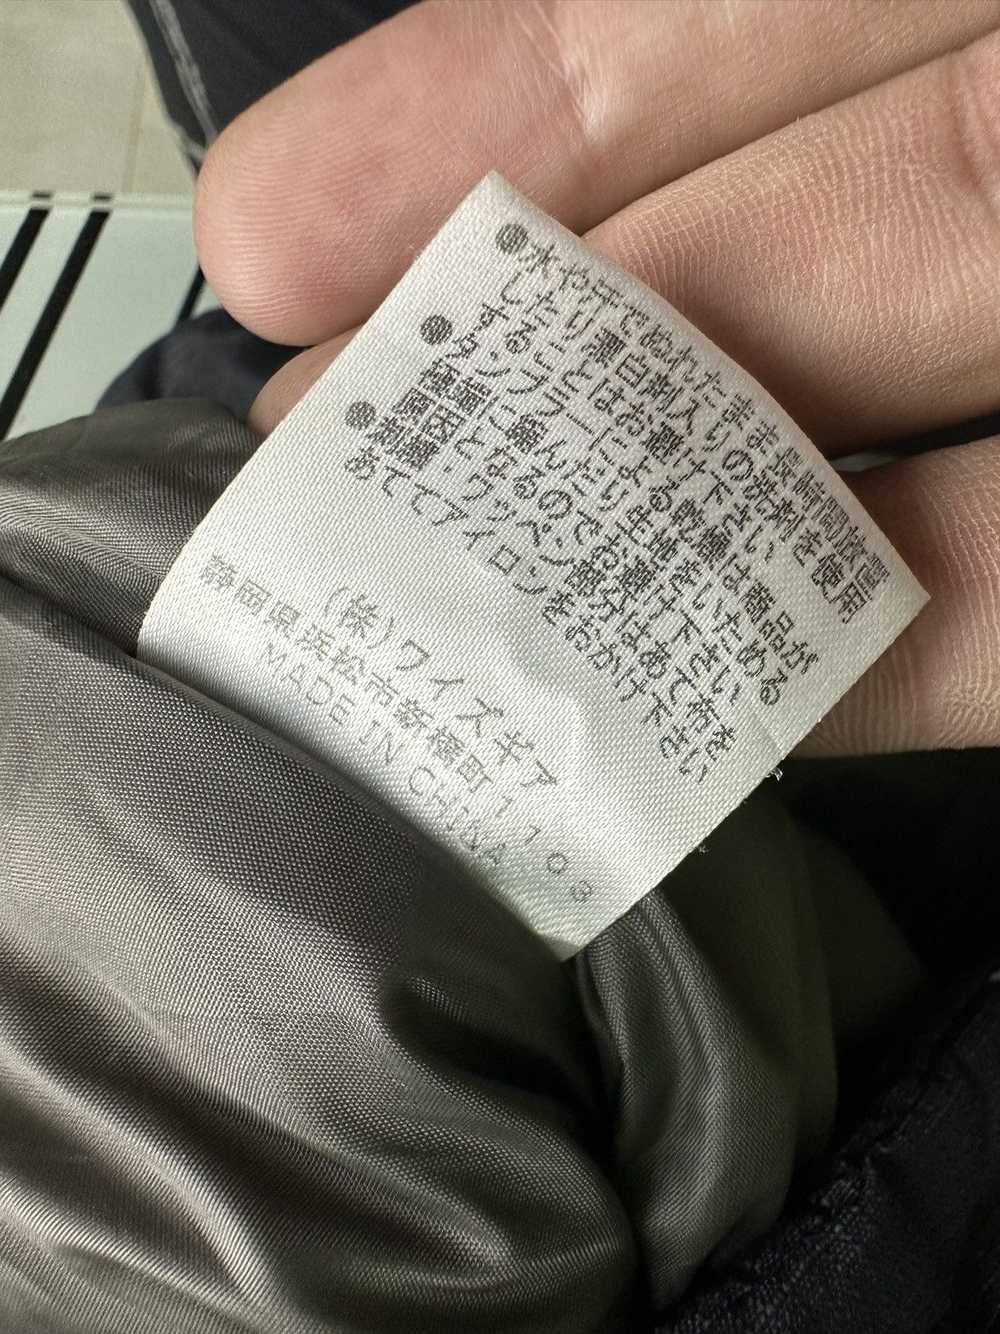 ●水や汗でぬれたまま長時間放置
したり漂白剤入りの洗料を使用
することはお避け下さい
●タンブラーによる乾燥は商品が
極端に縮んだり生地をいためる
原因となるのでお避け下さい
●刺繍・ワッペン部分はあて布を
あててアイロンをおかけ下さい
(株)ワイズギア
静岡県浜松市新橋町1103
MADE IN CHINA